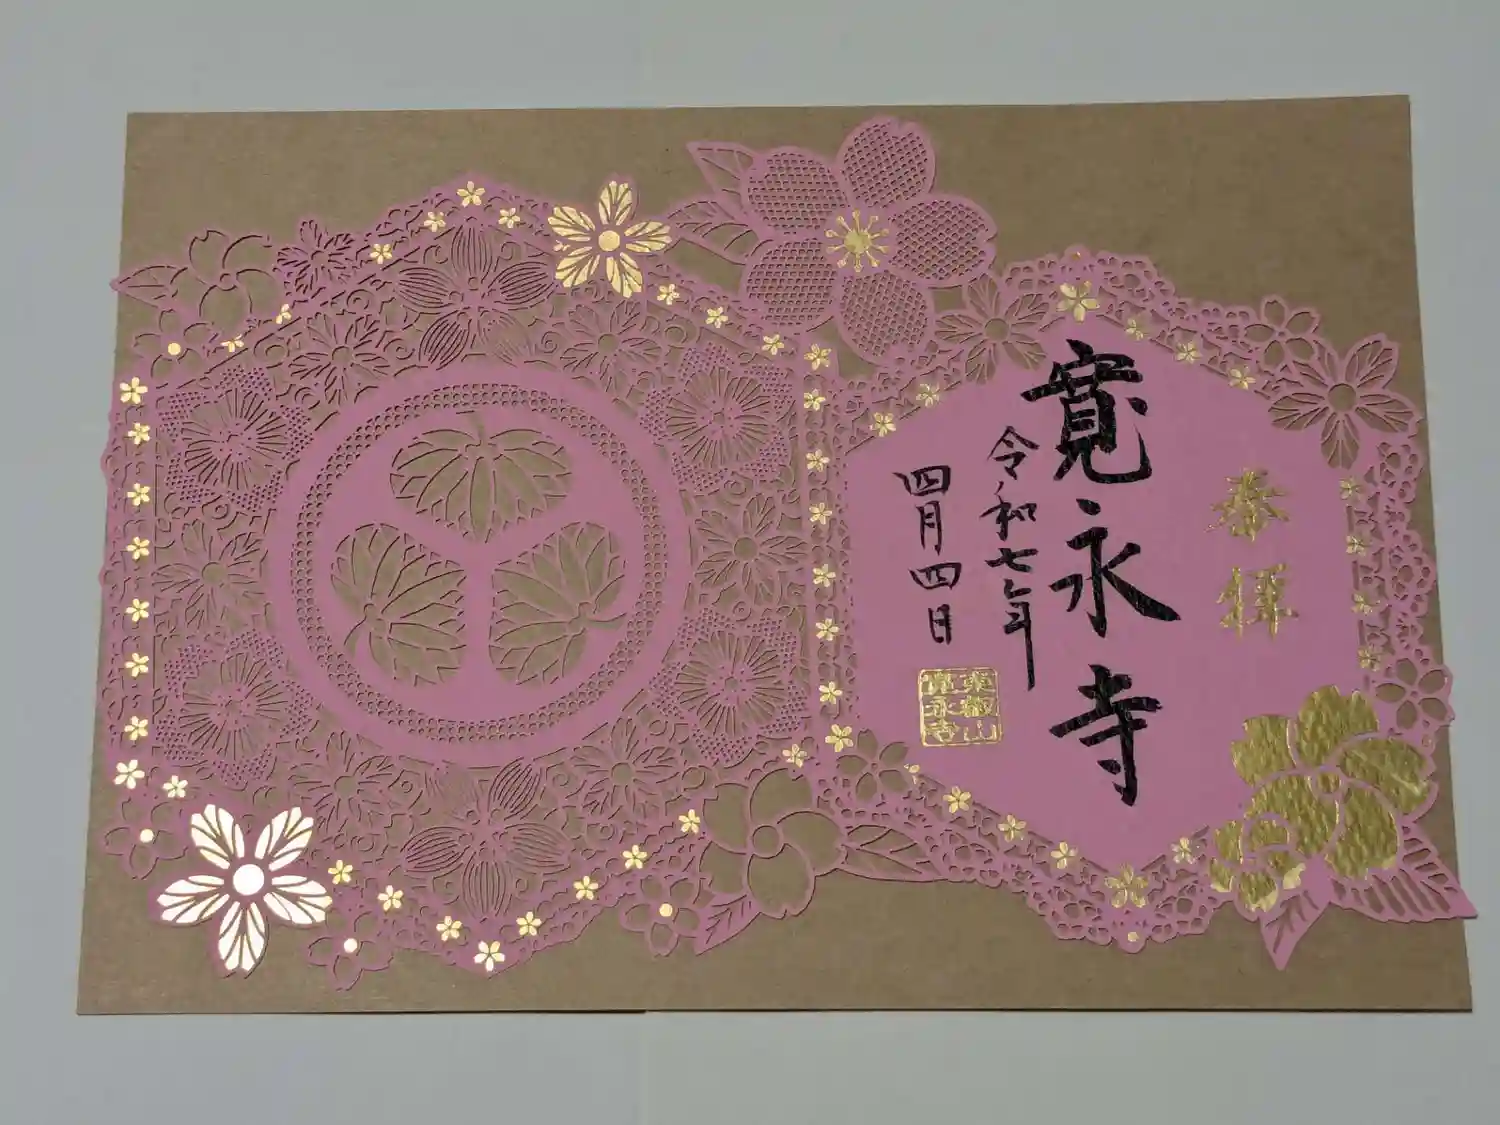 奉拝
寛永寺
令和七年
四月四日
東叡山
寛永寺